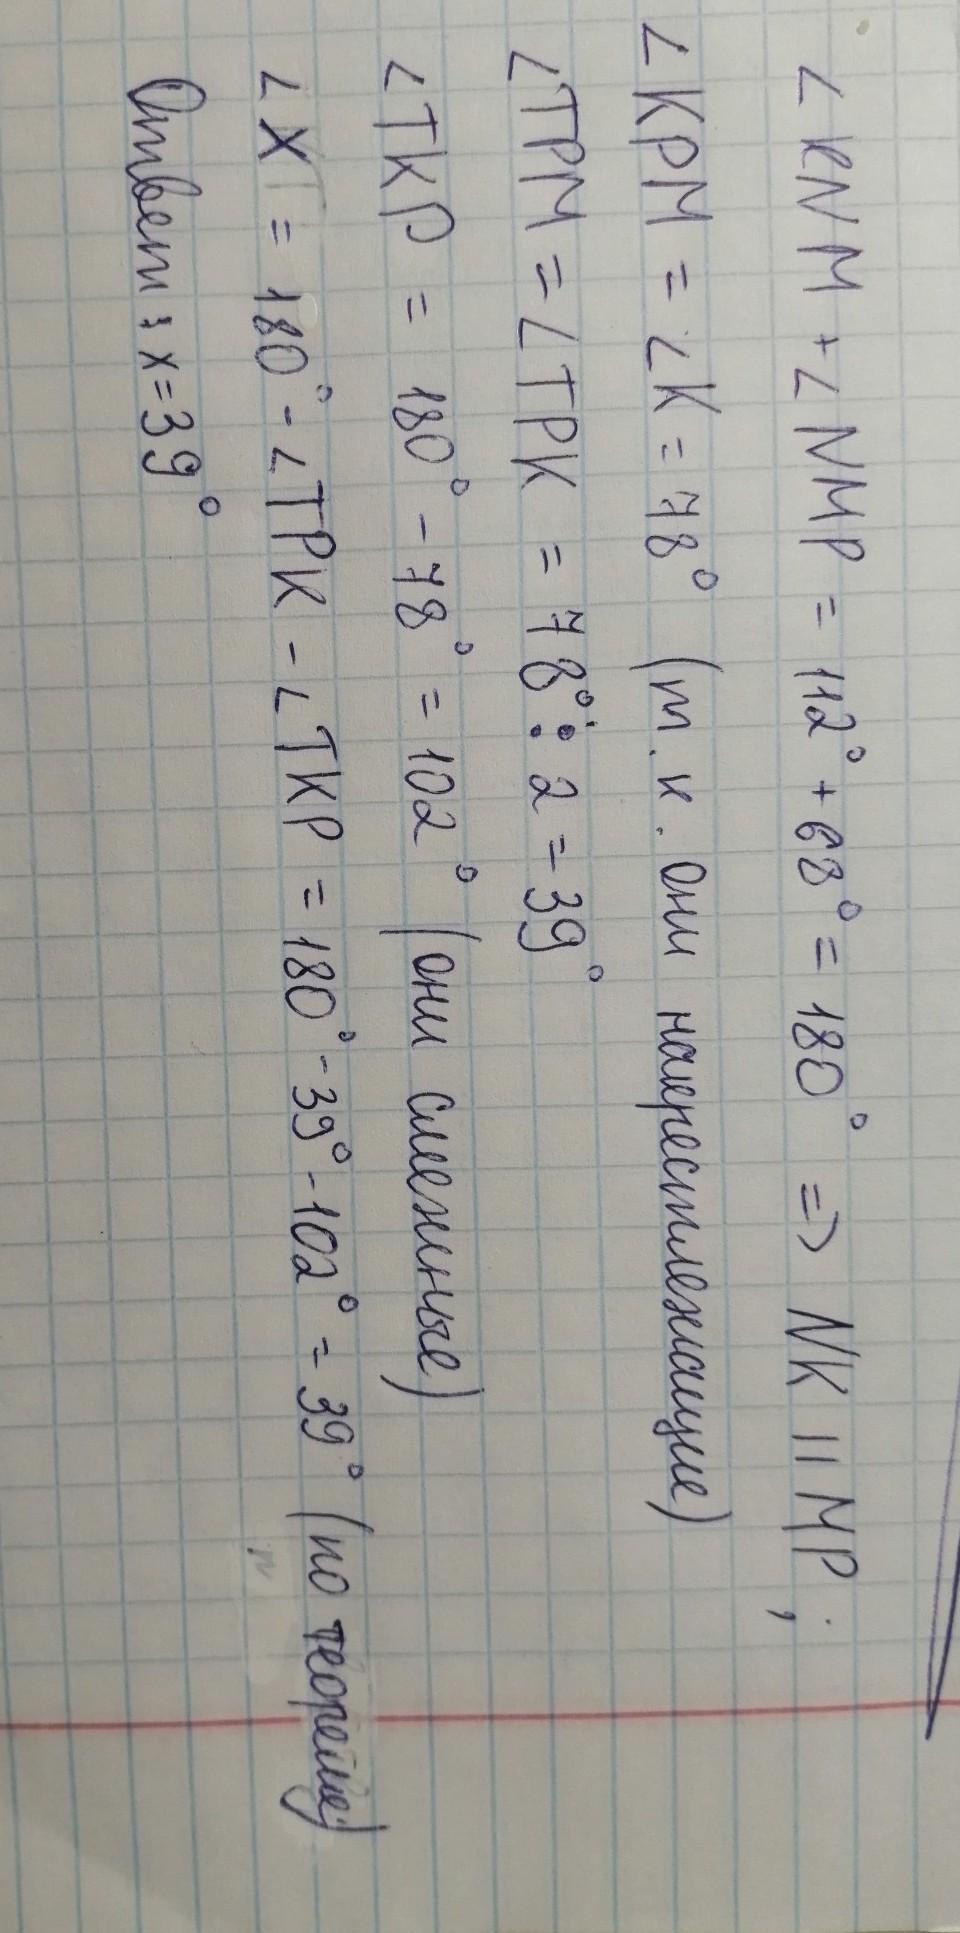 ∠KNM + ∠NMP = 112° + 68° = 180° => NK || MP;
∠KPM = ∠K = 78° (т.к. они накрестлежащие)
∠TPM = ∠TPK = 78° : 2 = 39°
∠TKP = 180° - 78° = 102° (они смежные)
∠X = 180° - ∠TPK - ∠TKP = 180° - 39° - 102° = 39° (по теореме)
Ответ: x = 39°